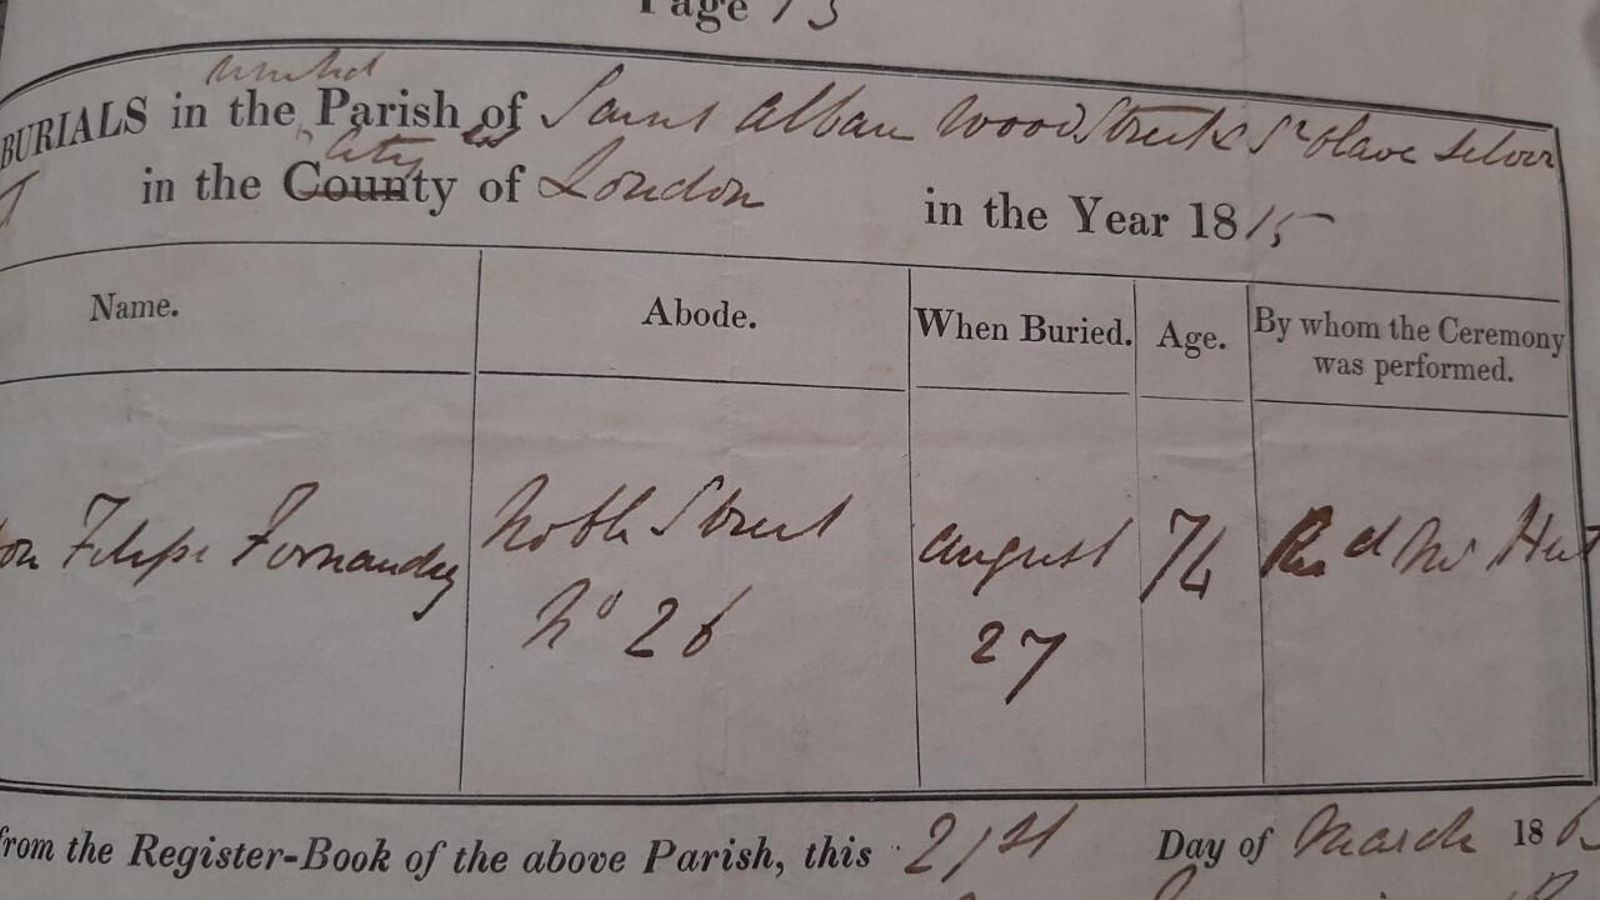 Page 13
united
BURIALS in the Parishes of Saint Alban Wood Street & St Olave Silver
City
in the County of London in the Year 1815
Name. Abode. When Buried. Age. By whom the Ceremony
was performed.
on Filipe Fernandez Noble Street August 74 Revd Mr Hut
No 26 27
from the Register-Book of the above Parish, this 21st Day of March 186